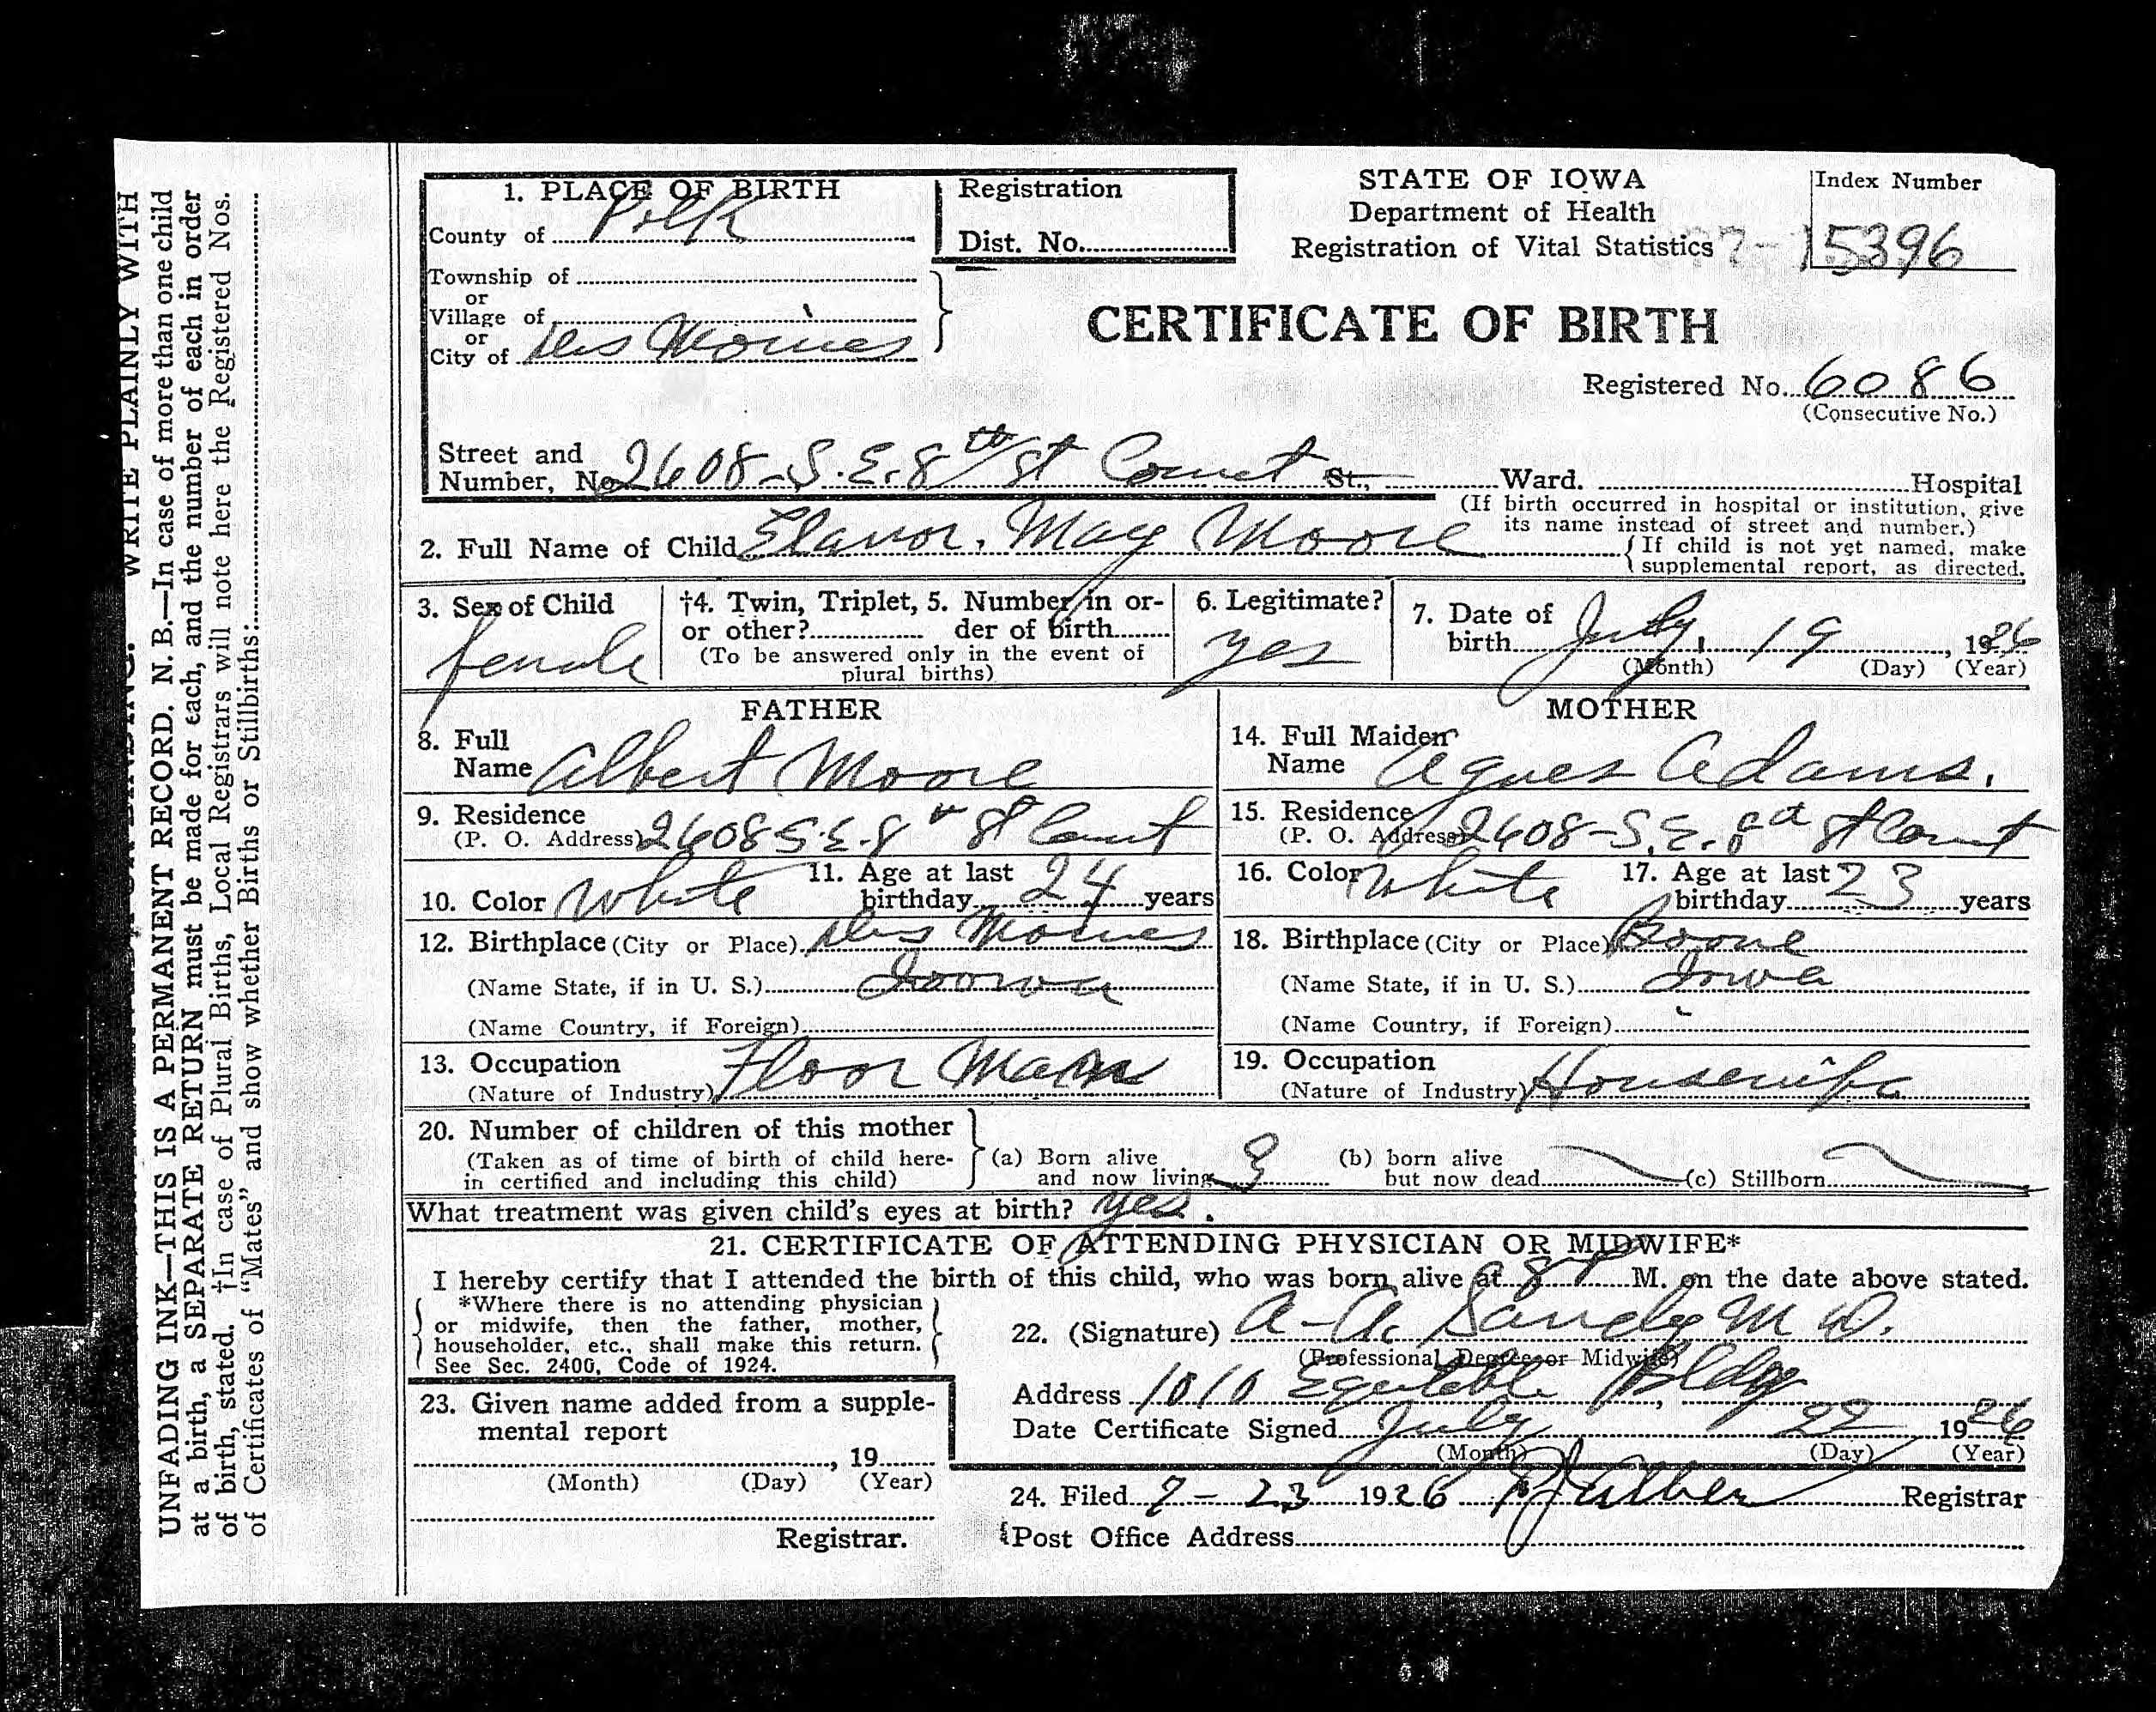 WRITE PLAINLY WITH
UNFADING INK—THIS IS A PERMANENT RECORD. N. B.—In case of more than one child
at a birth, a SEPARATE RETURN must be made for each, and the number of each in order
of birth, stated. †In case of Plural Births, Local Registrars will note here the Registered Nos.
of Certificates of “Mates” and show whether Births or Stillbirths:
1. PLACE OF BIRTH
County of Polk
Township of
or
Village of
or
City of Des Moines
Registration
Dist. No.
STATE OF IOWA
Department of Health
Registration of Vital Statistics
Index Number
77-15396
CERTIFICATE OF BIRTH
Registered No. 6086
(Consecutive No.)
Street and
Number, No. 2608-S.E. 8th St Court St., Ward. Hospital
(If birth occurred in hospital or institution, give
its name instead of street and number.)
2. Full Name of Child Elanor. May Moore
{ If child is not yet named, make
supplemental report, as directed.
3. Sex of Child
female
†4. Twin, Triplet,
or other?
5. Number in or-
der of birth
(To be answered only in the event of
plural births)
6. Legitimate?
yes
7. Date of
birth July, 19, 1926
(Month) (Day) (Year)
FATHER
8. Full
Name Albert Moore
9. Residence
(P. O. Address) 2608 S.E. 8th St Court
10. Color White
11. Age at last
birthday 24 years
12. Birthplace (City or Place) Des Moines
(Name State, if in U. S.) Ioowa
(Name Country, if Foreign)
13. Occupation
(Nature of Industry) Floor Man
MOTHER
14. Full Maiden
Name Agnes Adams.
15. Residence
(P. O. Address) 2608-S.E. 8th St Court
16. Color White
17. Age at last
birthday 23 years
18. Birthplace (City or Place) Boone
(Name State, if in U. S.) Iowa
(Name Country, if Foreign)
19. Occupation
(Nature of Industry) Housewife
20. Number of children of this mother
(Taken as of time of birth of child here-
in certified and including this child)
(a) Born alive
and now living 3
(b) born alive
but now dead
(c) Stillborn
What treatment was given child's eyes at birth? yes.
21. CERTIFICATE OF ATTENDING PHYSICIAN OR MIDWIFE*
I hereby certify that I attended the birth of this child, who was born alive at 8 P M. on the date above stated.
*Where there is no attending physician
or midwife, then the father, mother,
householder, etc., shall make this return.
See Sec. 2406, Code of 1924.
22. (Signature) A-A. Sandy M D.
(Professional Degree or Midwife)
Address 1010 Equitable Bldg
Date Certificate Signed July 22 1926
(Month) (Day) (Year)
23. Given name added from a supple-
mental report
, 19
(Month) (Day) (Year)
Registrar.
24. Filed 7-23 1926 Registrar
Post Office Address